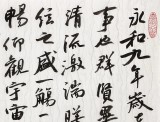 永和九年歲
事也群賢畢
清流激湍暎
之盛一觴一
暢仰觀宇宙